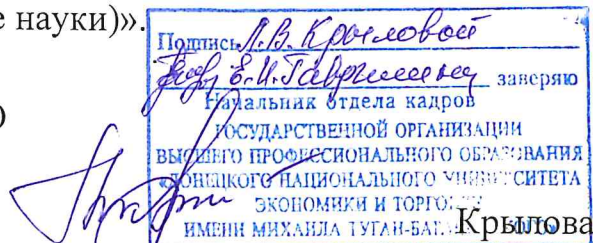 е науки)».
Подпись Л.В. Крыловой
Е.И. Гаврилиец заверяю
Начальник отдела кадров
)
ГОСУДАРСТВЕННОЙ ОРГАНИЗАЦИИ
ВЫСШЕГО ПРОФЕССИОНАЛЬНОГО ОБРАЗОВАНИЯ
«ДОНЕЦКОГО НАЦИОНАЛЬНОГО УНИВЕРСИТЕТА
ЭКОНОМИКИ И ТОРГОВЛИ
ИМЕНИ МИХАИЛА ТУГАН-БАРАНОВСКОГО»
Крылова